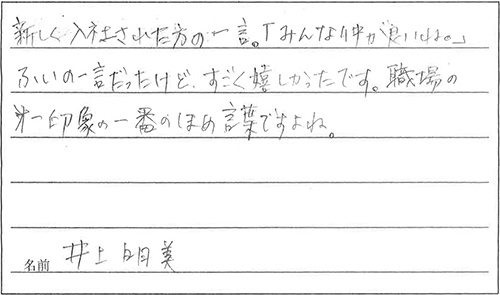 新しく入社された方の一言。「みんな仲が良いね。」
ふいの一言だったけど、すごく嬉しかったです。職場の
第一印象の一番のほめ言葉ですよね。
名前 井上明美